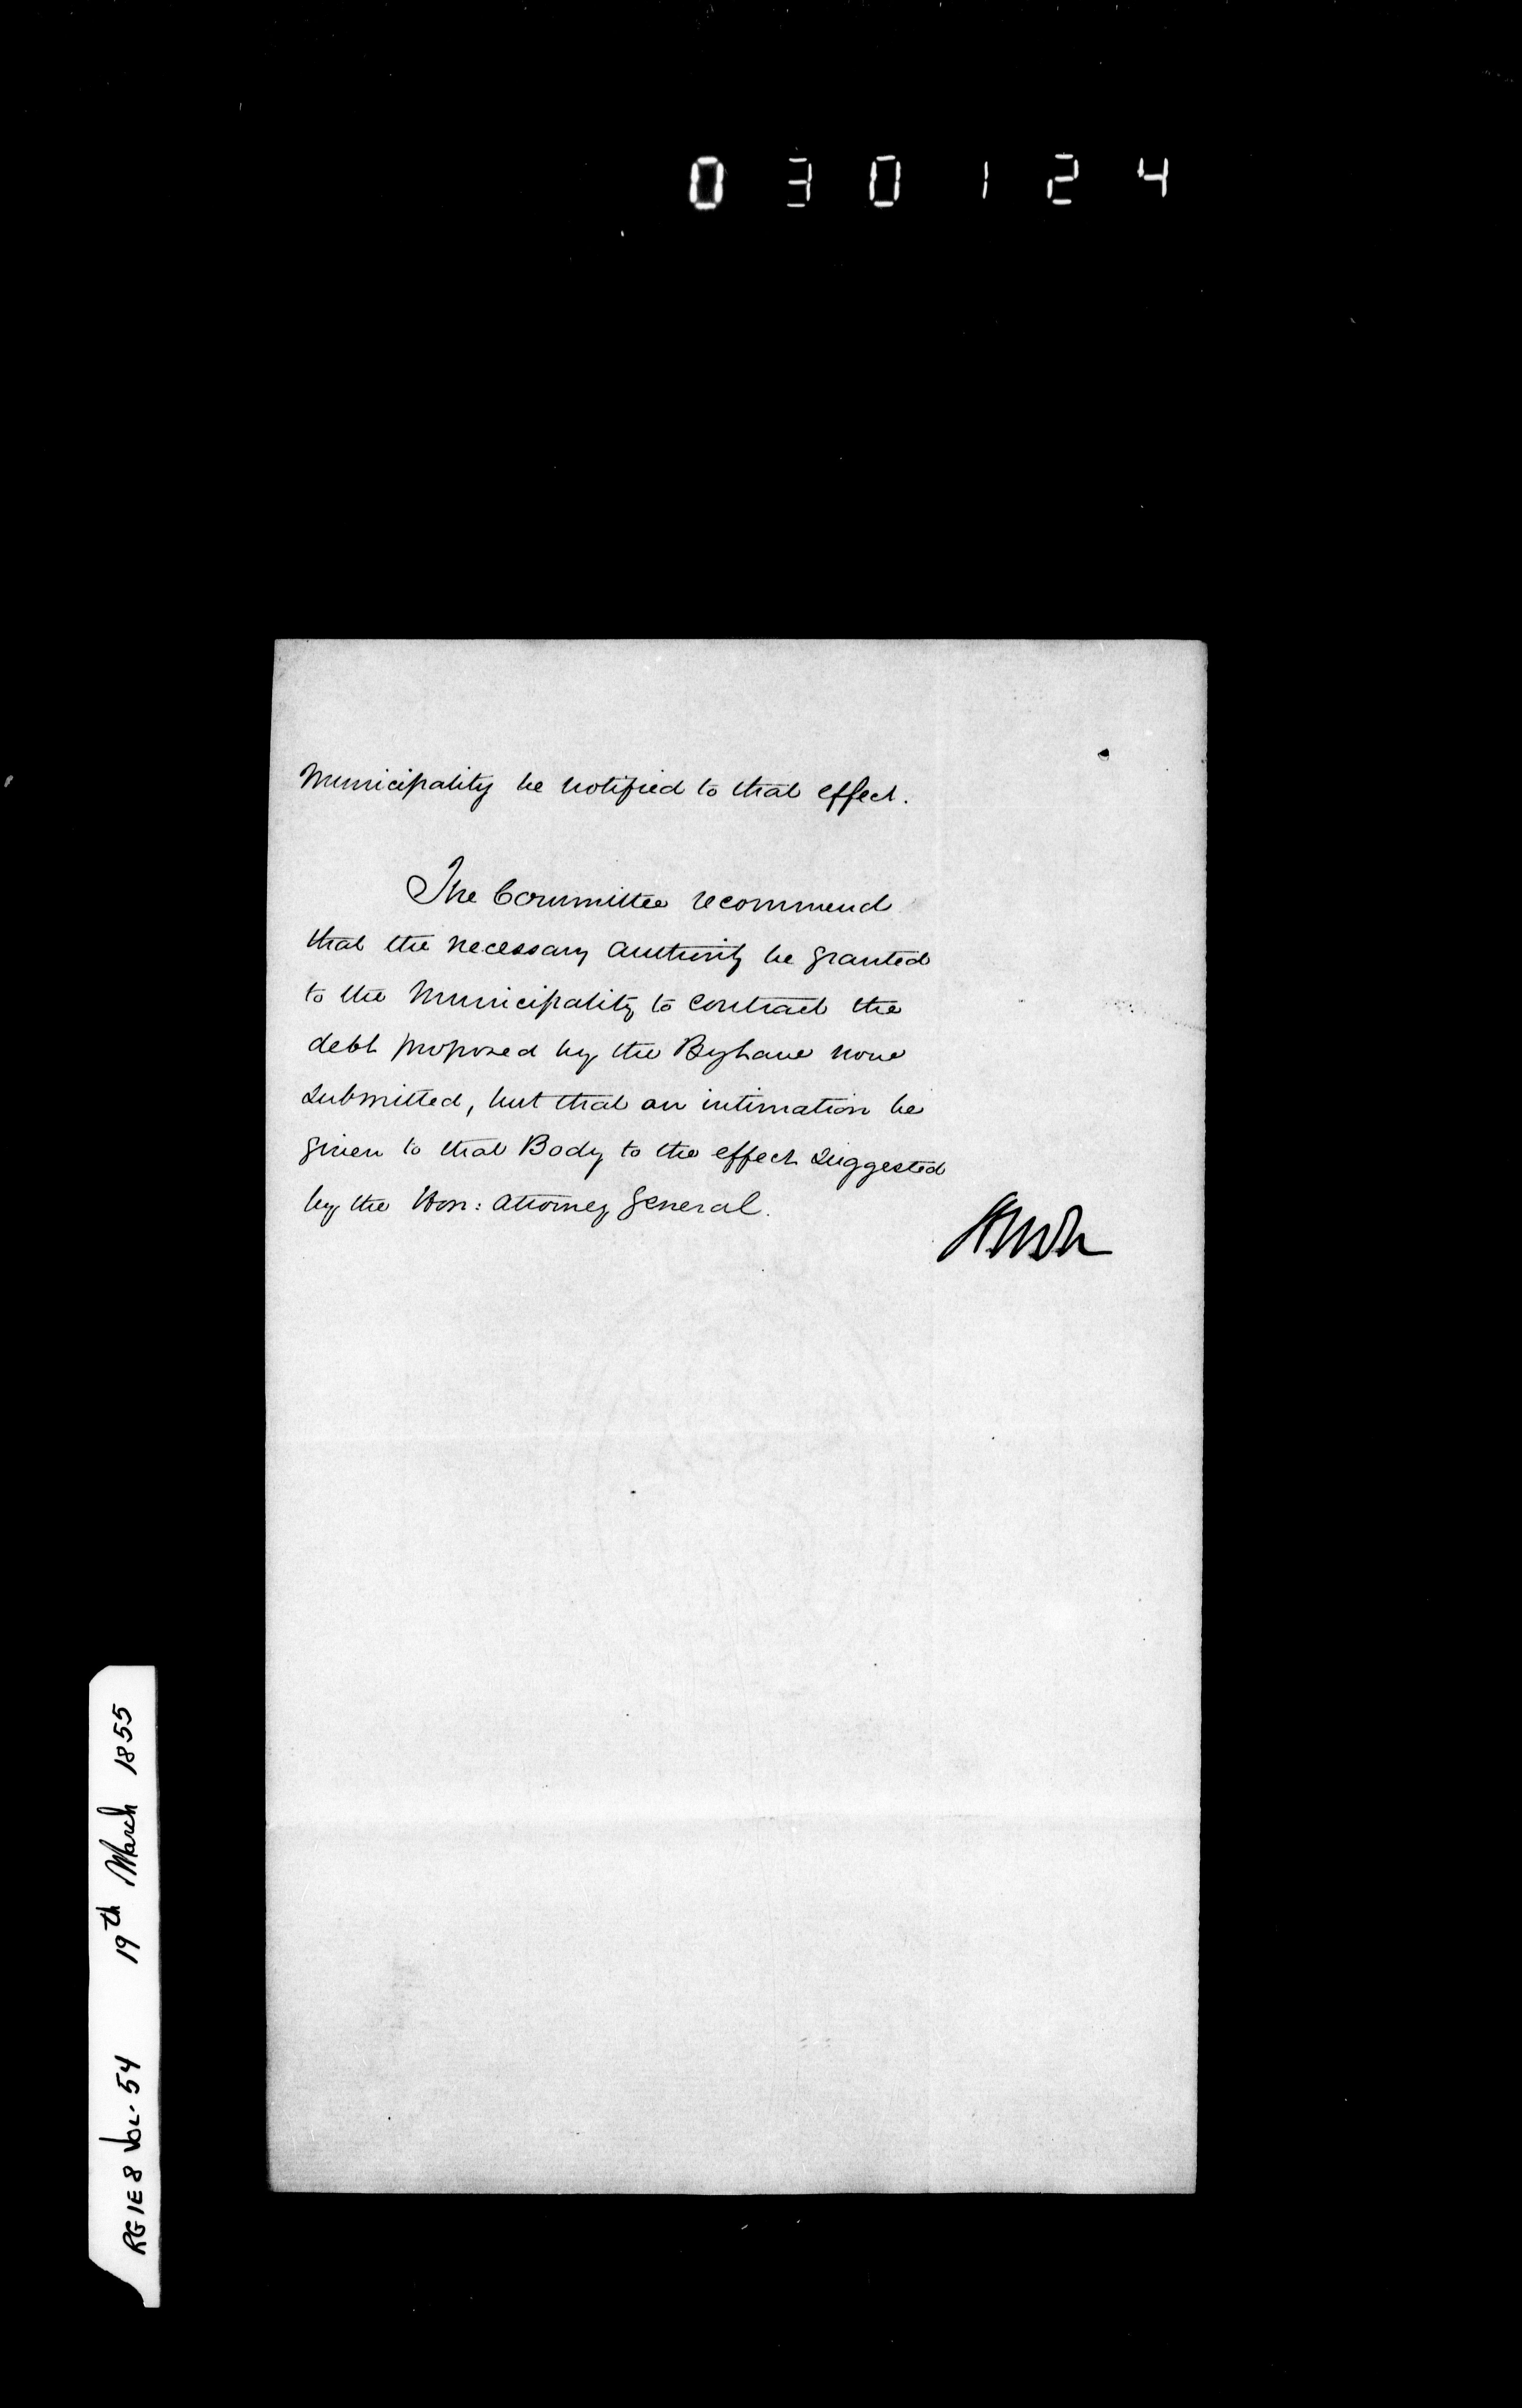 030124
Municipality be notified to that effect.
The Committee recommend
that the necessary authority be granted
to the Municipality to contract the
debt proposed by the Bylaw now
submitted, but that an intimation be
given to that Body to the effect suggested
by the Hon: Attorney General.
RG 1E8 VOL. 54 19th March 1855